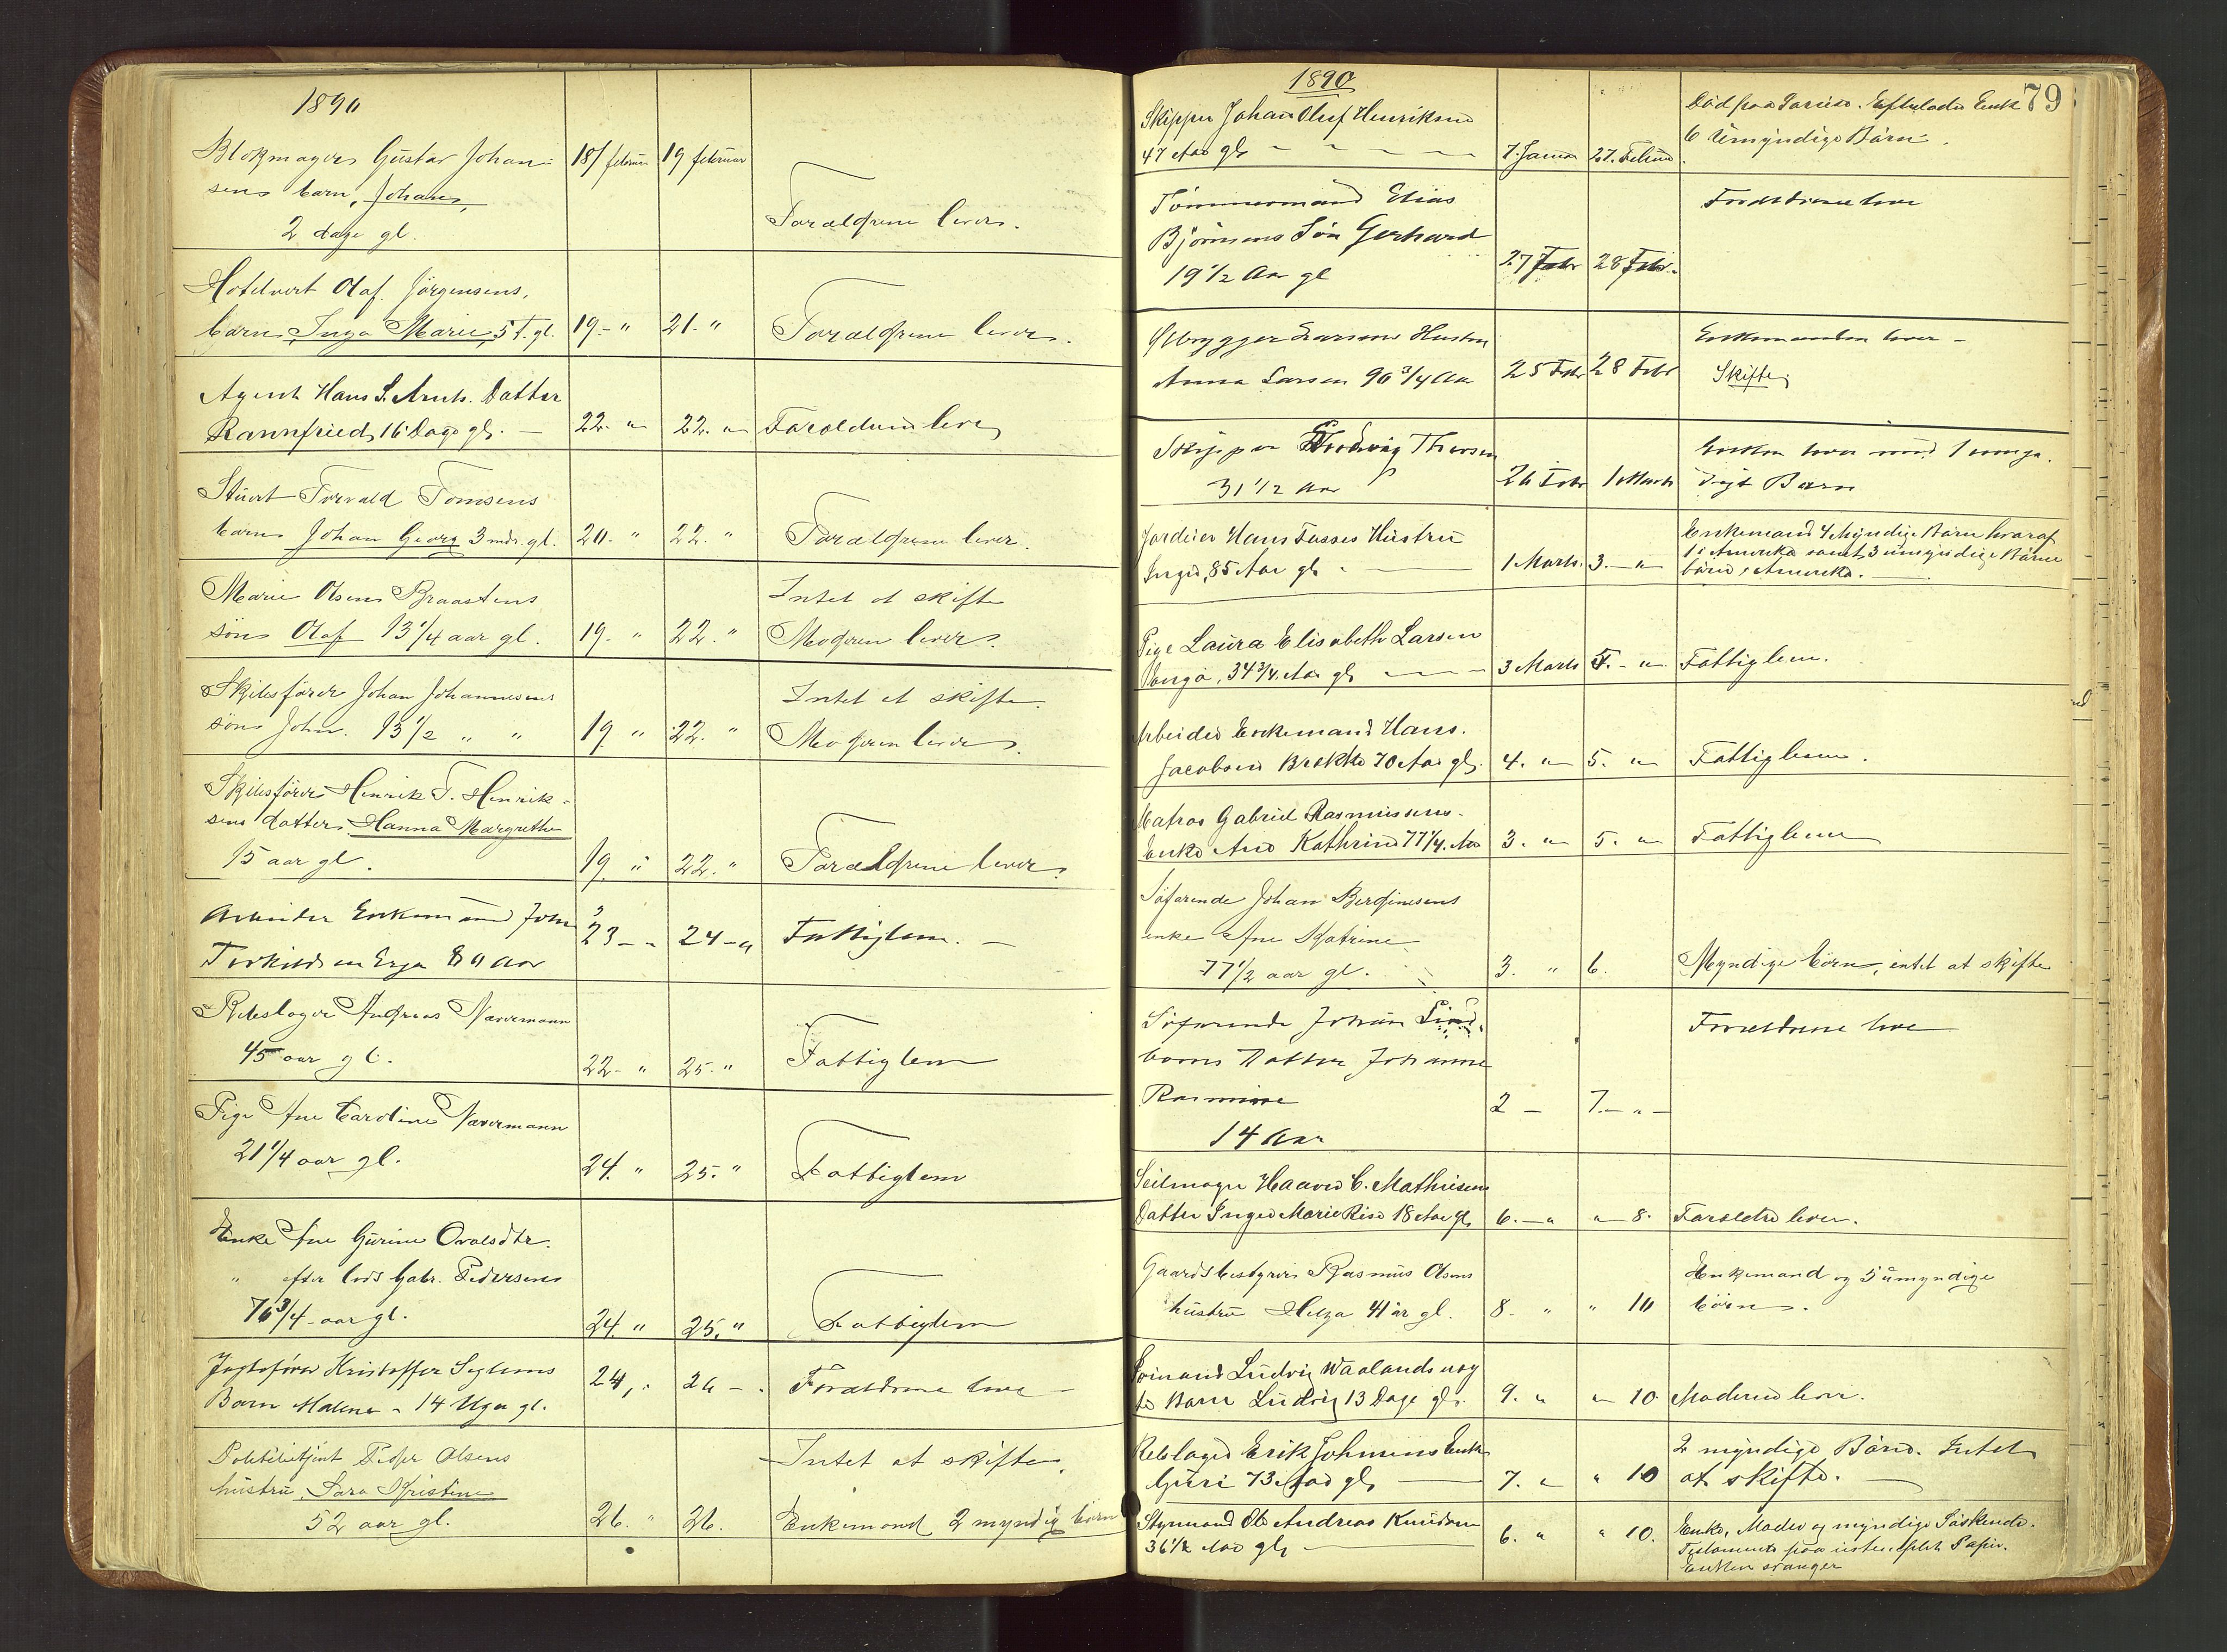 1890
Blokmager Gustav Johan-
sens barn, Johan, 18/ februar 19 februar
2 dage gl. Forældrene lever.
Hotelvert Olaf Jörgensens,
barn Inga Marie 5 T. gl. 19.- " 21. " Forældrene lever.
Agent Hans S. Arnts. Datter
Rannfried, 16 Dage gl. — 22. " 22. " Forældrene lever
Stuert Torvald Tomsens
barn Johan Georg 3 mdr. gl. 20. " 22. " Forældrene lever.
Marie Olsen Braastens Intet at skifte
søn Olaf 13 1/4 aar gl. 19. " 22. " Moderen lever.
Skibsförer Johan Johannesens Intet at skifte
søn John. 13 1/2 " " 19 " 22. " Moderen lever.
Skibsförer Henrik T. Henrik-
sens datter Hanna Margrethe
15 aar gl. 19 " 22. " Forældrene lever.
Arbeider Enkemand John 23 — " 24 — " Fattiglem. —
Torkildsen Erga 80 aar
Rebslager Andreas Nævermann
45 aar gl. 22.- " 25. " Fattiglem
Pige Ane Caroline Nævermann
21 1/4 aar gl. 24. " 25. " Fattiglem
Enke Ane Gurine Oralsdtr.
" efter lods Gabr. Pedersen
76 3/4 aar gl. 24. " 25. " Fattiglem
Jagtsförer Kristoffer Siglems 24, " 26 — . Forældrene leve —
Barn Malena - 14 Uger gl.
Politibetjent Peder Olsens Intet at skifte,
hustru, Sara Kristine
52 aar gl. 26. " 26. Enkemand 2 myndig börn
1890
79
Skipper Johan Oluf Henriksen Död paa Seereise. Efterlader Enke
47 Aar gl. 7. Januar 27. Februar 6 Umyndige Börn.
Tömmermand Elias Forældrene leve
Björnsens Søn Gerhard
19 1/2 Aar gl 27 Febr 28 Febr.
Ølbrygger Larsens Hustru Enkemanden lever —
Anna Larsen 90 3/4 Aar 25 Febr 28 Febr Skifte
Skipper Thorsen Enken lever med 1 umyn-
31 1/2 Aar 26 Febr 1 Marts digt Barn
Jordeier Hans Tasses Hustru Enkemand 4 Myndige Börn hvoraf
1 i Amerika samt 3 umyndige Börne
Inger, 85 Aar gl. 1 Marts. 3. — " börn i Amerika.
Pige Laura Elisabeth Larsen
34 3/4 Aar gl. 3 Marts 4. - " Fattiglem.
Arbeider Enkemand Hans.
Jacobsen Brekke 70 Aar gl. 4. " 5. " Fattiglem.
Matros Gabriel Rasmussens.
Enke Ane Kathrine 77 1/4. Aar 3. " 5. " Fattiglem
Söfarende Johan Berdinesens
enke Ane Katrine
77 1/2 aar gl. 3. " 6. Myndige börn, intet at skifte
Söfarende Johan Lind- Forældrene leve
boms Datter Johanne
Rasmine 2 — 7.— " —
14 Aar
Seilmager Haaver C. Mathiesens
Datter Inger Marie Rise 18 Aar gl. 6. — " " 8. Forældre lever.
Gaardsbestyrer Rasmus Olsens Enkemand og 5 umyndige
hustru Helga 41 år gl. 8. " " 10 börn.
Formand Ludvig Waalands uæg
te Barn Ludvig 13 Dage gl. 9. " " 10 Moderen lever.
Rebslager Erik Johnsens Enke 2 myndige Börn. Intet
Guri 73 Aar gl. 7. " " 10 at skifte.
Styrmand Ole Andreas Knudsen Enke, Moder og myndige Söskende.
36 1/2 Aar gl. 6. " " 10. Testamente paa ustemplet Papir.
Enken svanger